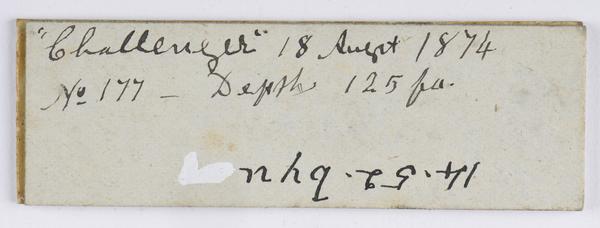 "Challenger" 18 Augst 1874
No 177 - Depth 125 fa.